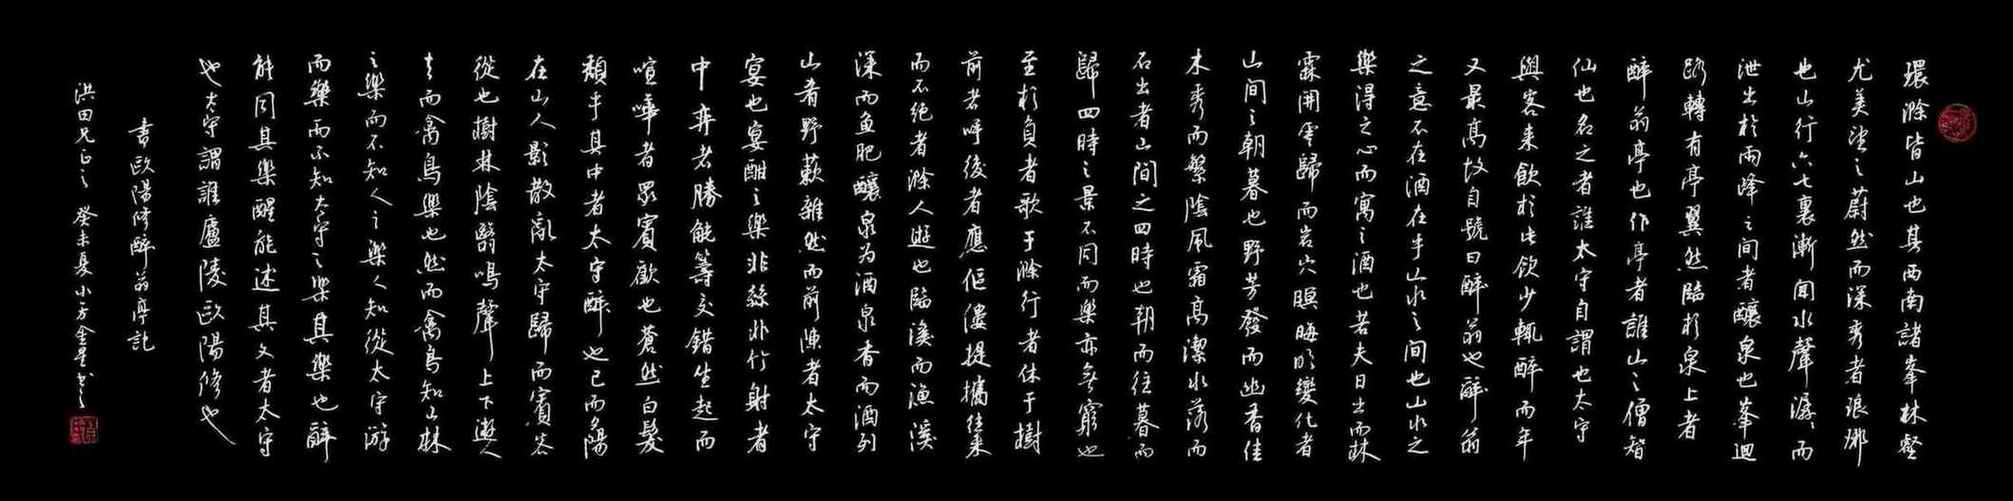 環滁皆山也其西南諸峯林壑
尤美望之蔚然而深秀者琅琊
也山行六七裏漸聞水聲潺潺而
泄出於兩峰之間者釀泉也峯迴
路轉有亭翼然臨於泉上者
醉翁亭也作亭者誰山之僧智
仙也名之者誰太守自謂也太守
與客來飲於此飲少輒醉而年
又最高故自號曰醉翁也醉翁
之意不在酒在乎山水之間也山水之
樂得之心而寓之酒也若夫日出而林
霏開雲歸而岩穴暝晦明變化者
山間之朝暮也野芳發而幽香佳
木秀而繁陰風霜高潔水落而
石出者山間之四時也朝而往暮而
歸四時之景不同而樂亦無窮也
至於負者歌于滁行者休于樹
前者呼後者應傴僂提攜往來
而不絕者滁人遊也臨溪而漁溪
深而魚肥釀泉为酒泉香而酒列
山肴野蔌雜然而前陳者太守
宴也宴酣之樂非絲非竹射者
中弈者勝觥籌交錯坐起而
喧嘩者眾賓歡也蒼然白髮
頹乎其中者太守醉也已而夕陽
在山人影散亂太守歸而賓客
從也樹林陰翳鳴聲上下遊人
去而禽鳥樂也然而禽鳥知山林
之樂而不知人之樂人知從太守游
而樂而不知太守之樂其樂也醉
能同其樂醒能述其文者太守
也太守謂誰廬陵歐陽修也
書歐陽修醉翁亭記
洪田兄正之 癸未夏小方金星书之